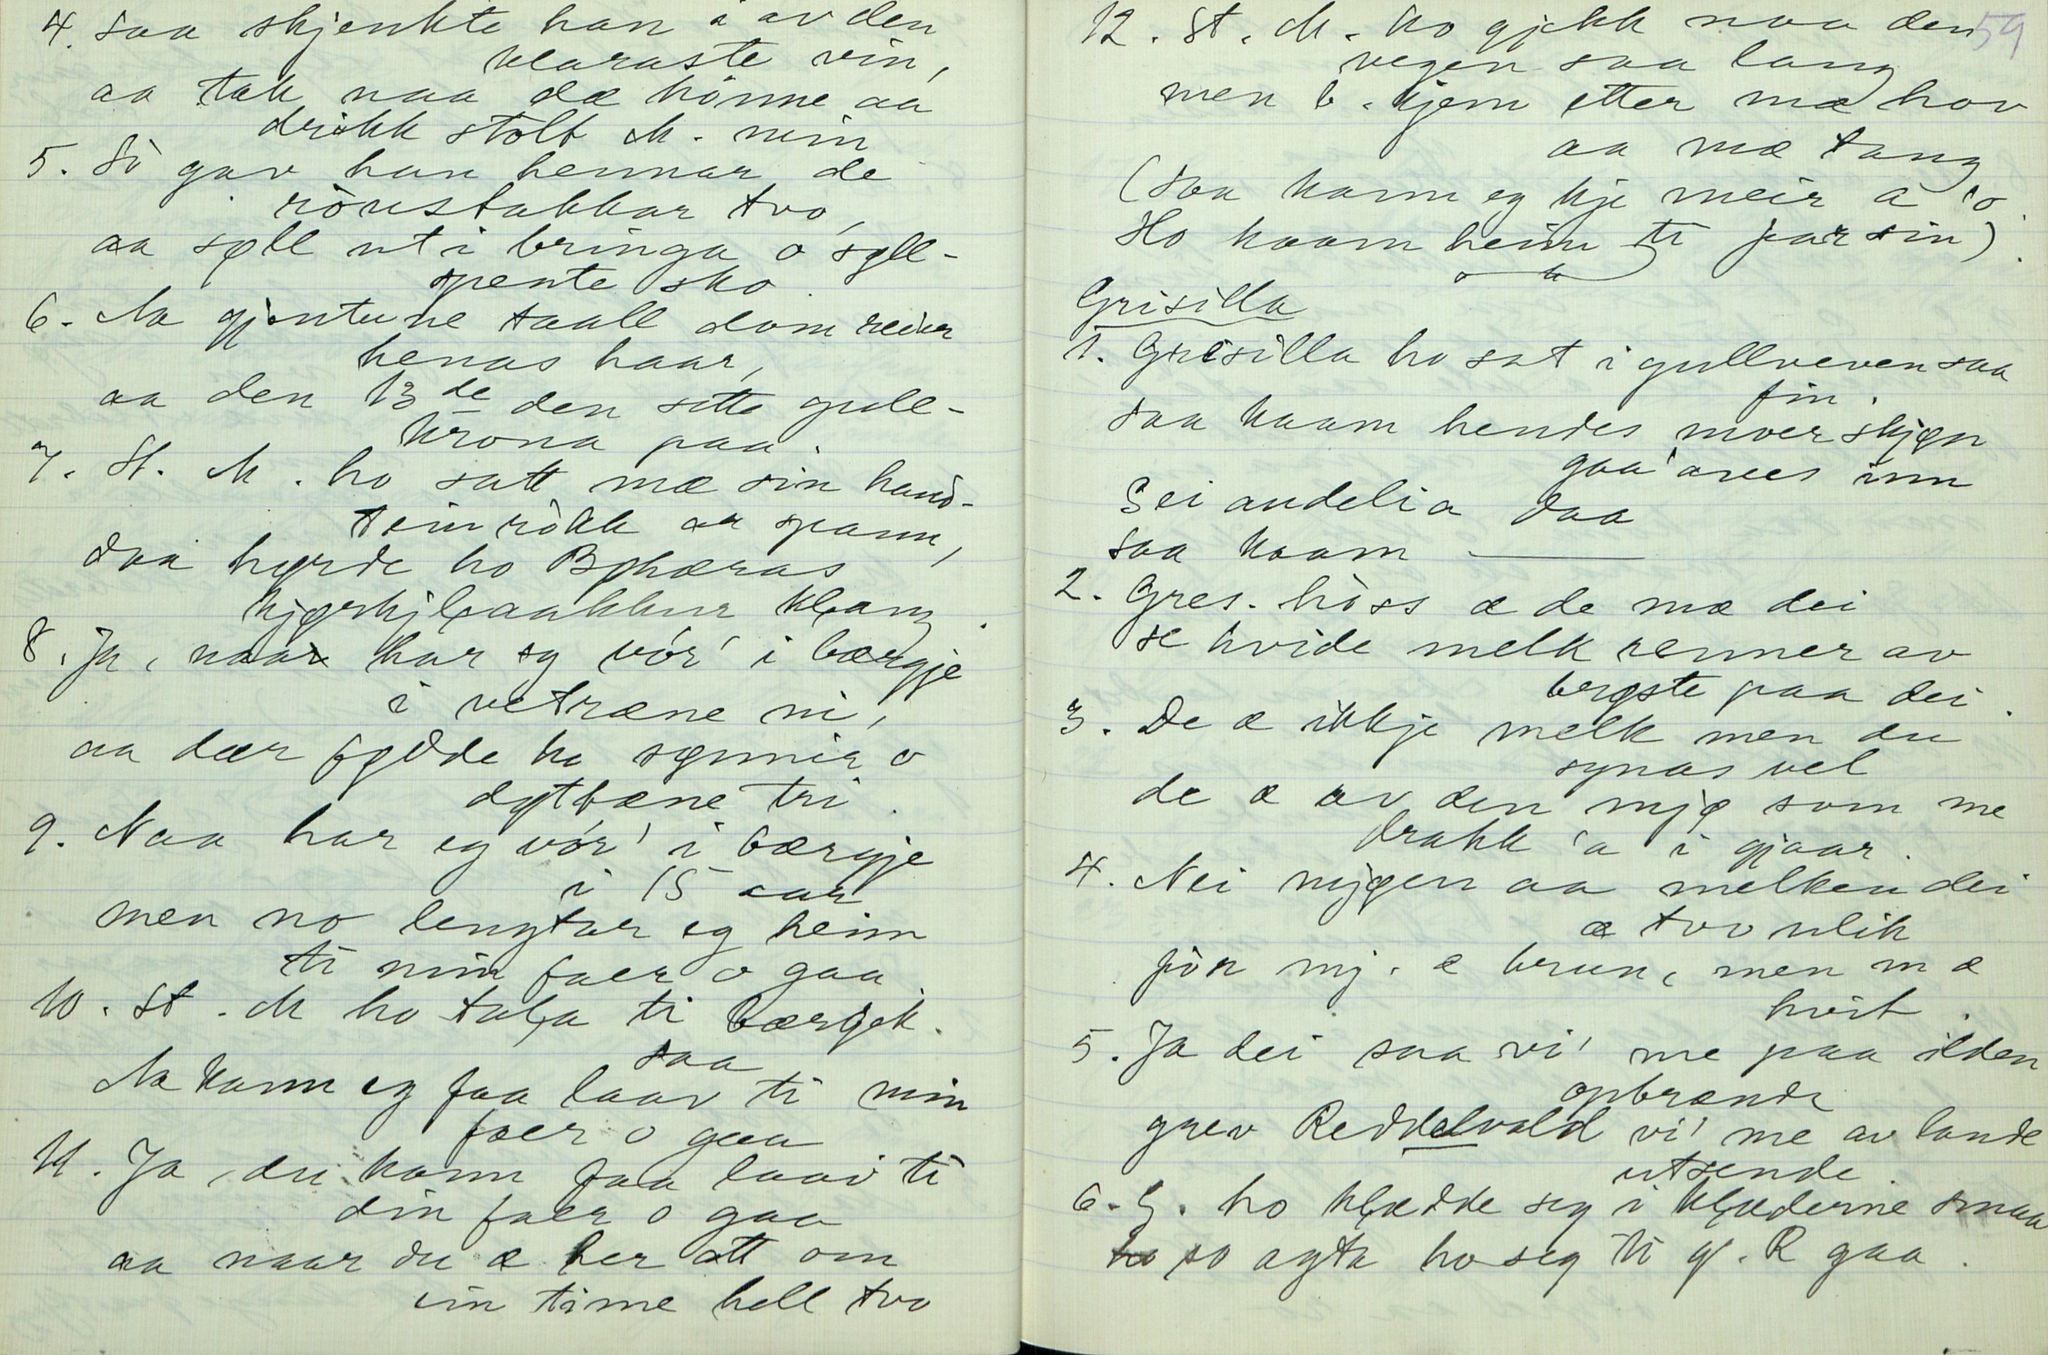 4. Saa skjenkte han i av den
klaraste vin,
aa tak naa dæ hònne aa
drikk stolt M. min
5. Så gav han hennar de
rònstakkar tvo,
aa søll uti bringa o' søll-
spente sko.
6. No gjentune taall dom reier
henas haar,
aa den 13de den sette gull-
kròna paa.
7. St. M. ho satt mæ sin hand-
teinròkk aa spann,
daa hørde ho Bøhæras
kjørkjeł aakkur klang.
8. Ja, naa har eg vór' i bærgje
i vetræne ni,
aa dær fødde ho sønnir o
døtræne tri.
9. Naa har eg vór' i bærgje
i 15 aar
men no lengtar eg heim
ti min faer o gaa.
10. St. M ho tala ti bærgjek.
saa
No kann eg faa laav ti min
faer o gaa
11. Ja du kann faa laav ti
din faer o gaa
aa naar du æ her att om
ein time hell tvo
59
12. St. M. ho gjekk naa den
vegen saa lang
men b. kjem etter mæ hov
aa mæ tang
(Saa kann eg kje meir a 'o.
Ho kaam heim ti far sin).
Grisilla
1. Grisilla ho sat i gullveven saa
fin.
saa kaam hendes moer skjøn
gaa'anes inn
Sei andelia daa
saa kaam ———
2. Gres. hòss æ de mæ dei
se hvide melk renner av
brøste paa dei.
3. De æ ikkje melk men du
synas vel
de æ av den mjø som me
drakk 'a i gjaar.
4. Nei mjøen aa melken dei
æ tvo ulik
fòr mj. æ brun, men m æ
hvit.
5. Ja dei saa vi' me paa ilden
opbrænde
grev Reddelvald vi' me av lande
utsende.
6. G. ho kłædde seg i kłæderne smaa
so agta ho seg ti gr. R gaa.